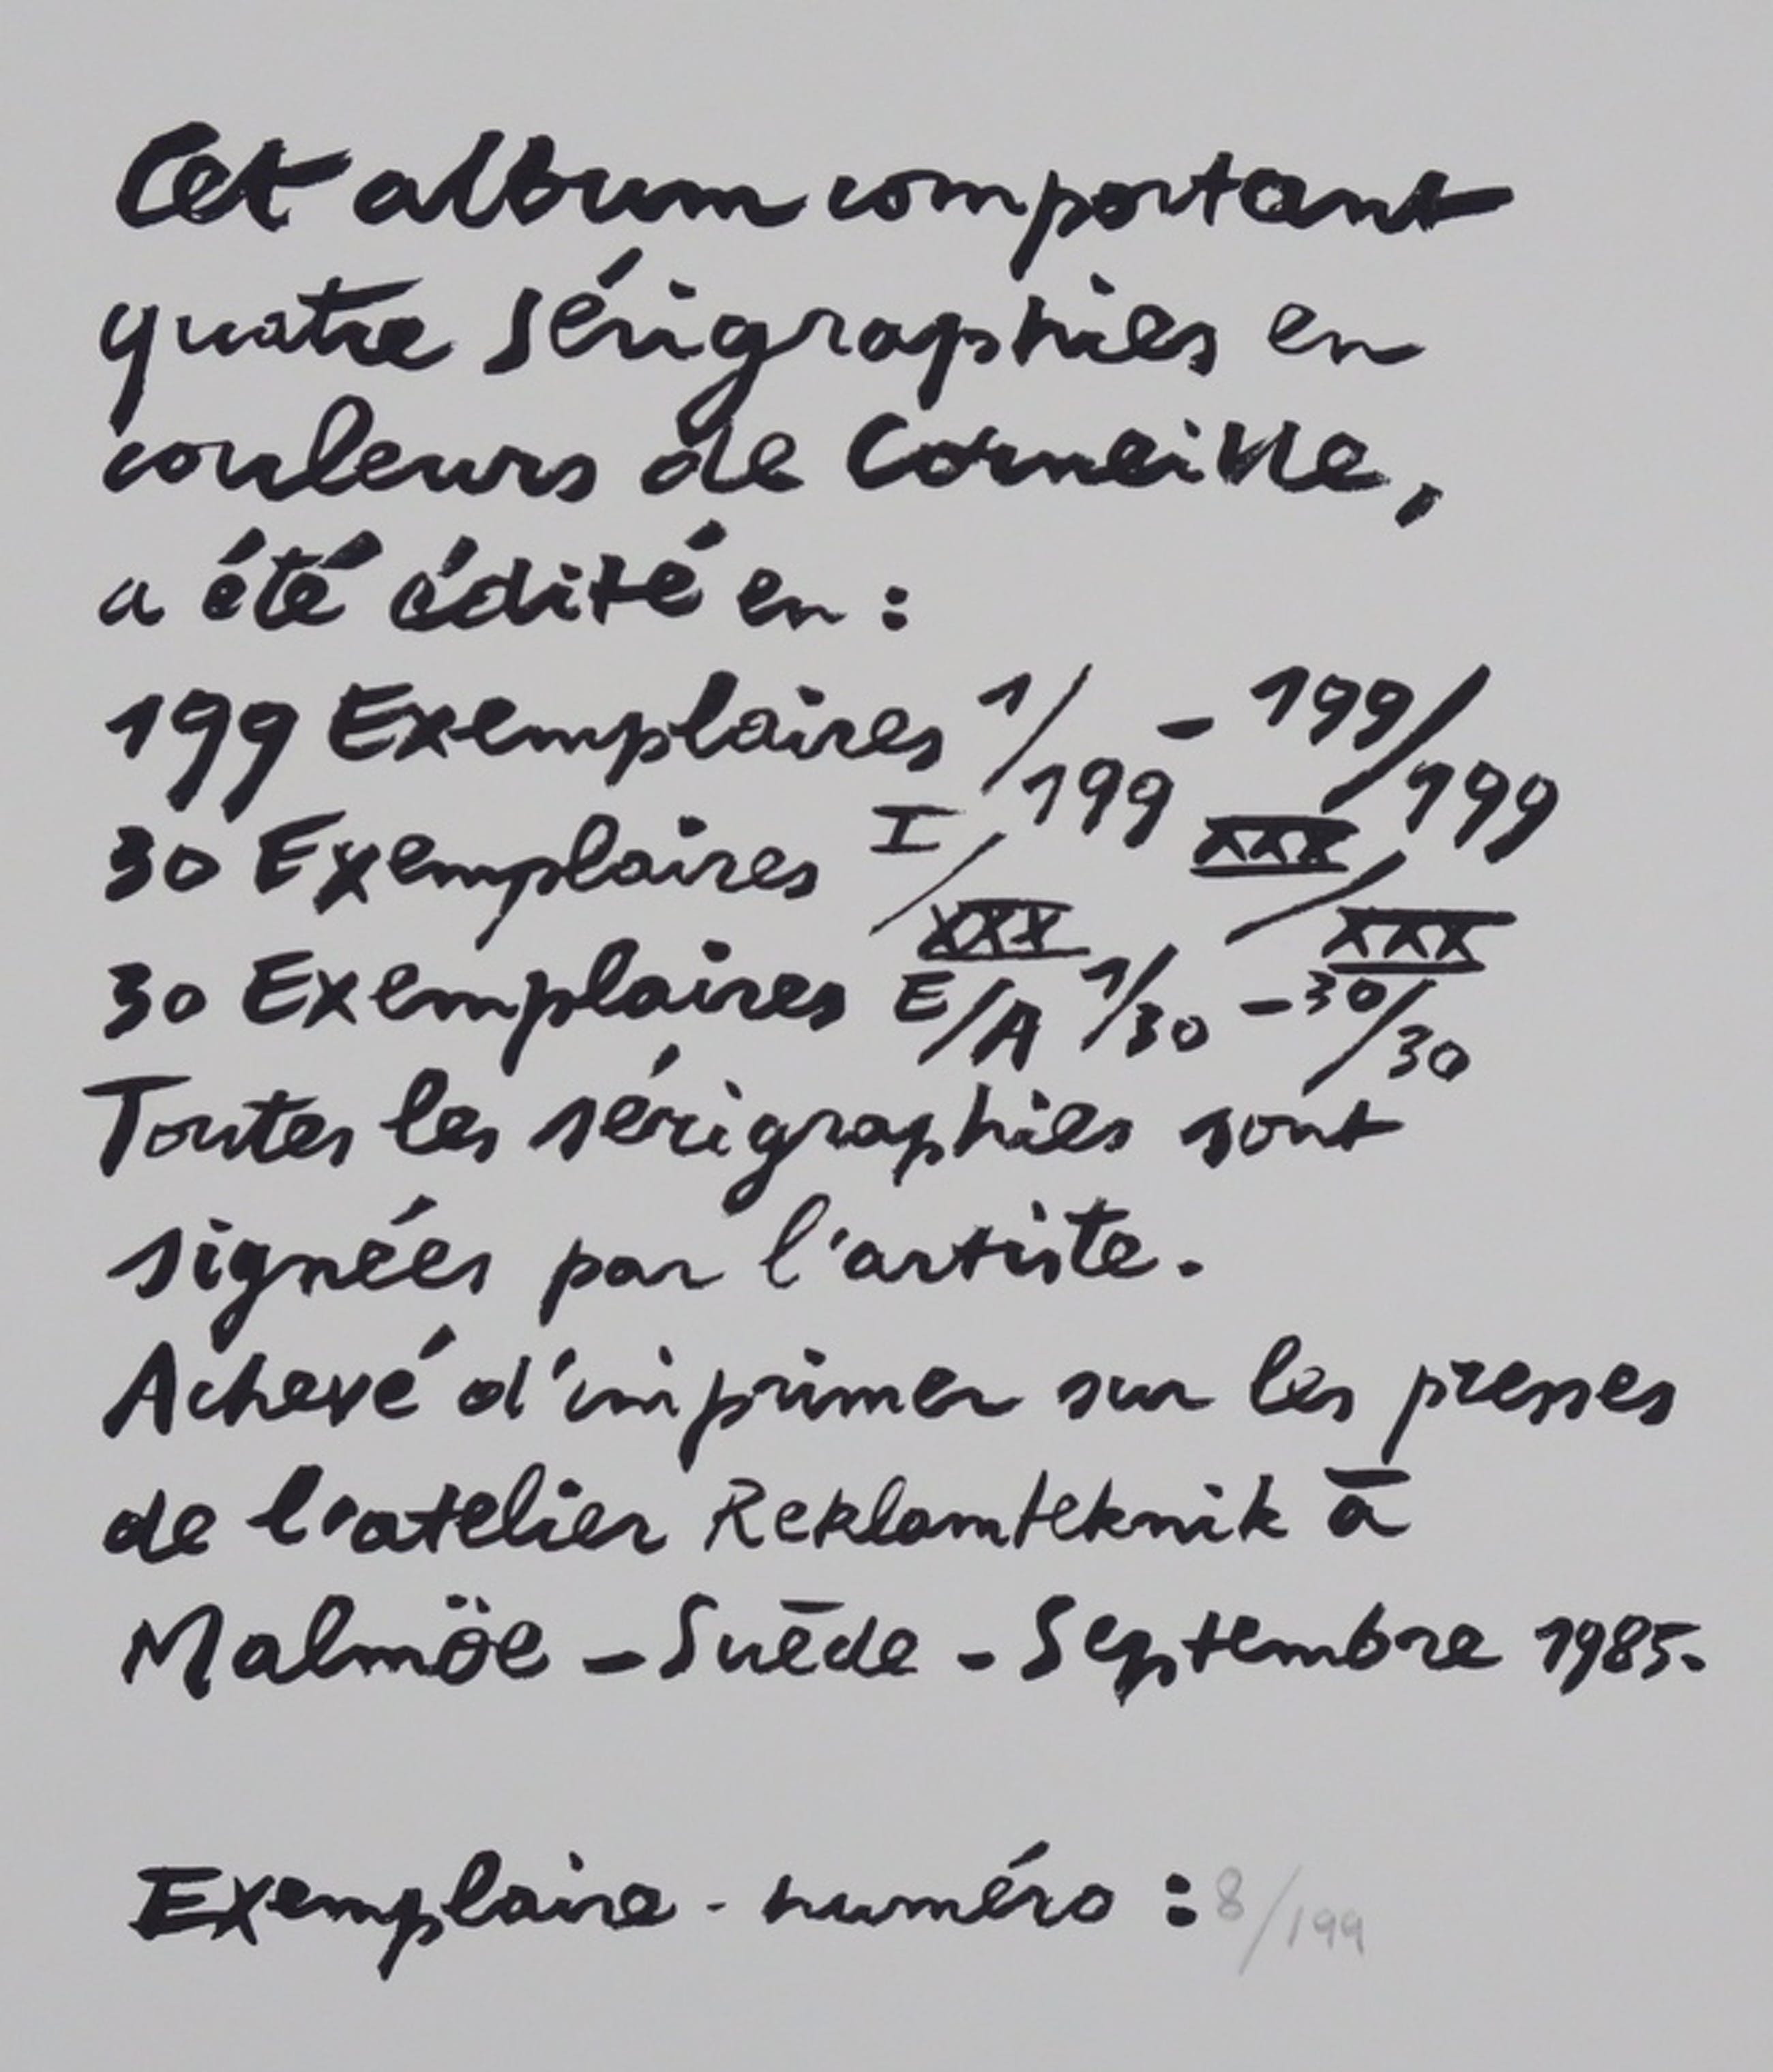 Cet album comportant
quatre sérigraphies en
couleurs de Corneille,
a été édité en :
199 Exemplaires 1/199 - 199/199
30 Exemplaires I/XXX XXX/XXX
30 Exemplaires E/A 1/30 - 30/30
Toutes les sérigraphies sont
signées par l'artiste.
Achevé d'imprimer sur les presses
de l'atelier Reklamteknik à
Malmöe - Suède - Septembre 1985.
Exemplaire - numéro : 8/199